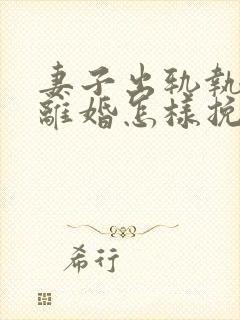 妻子出轨執
離婚怎樣挽
希行